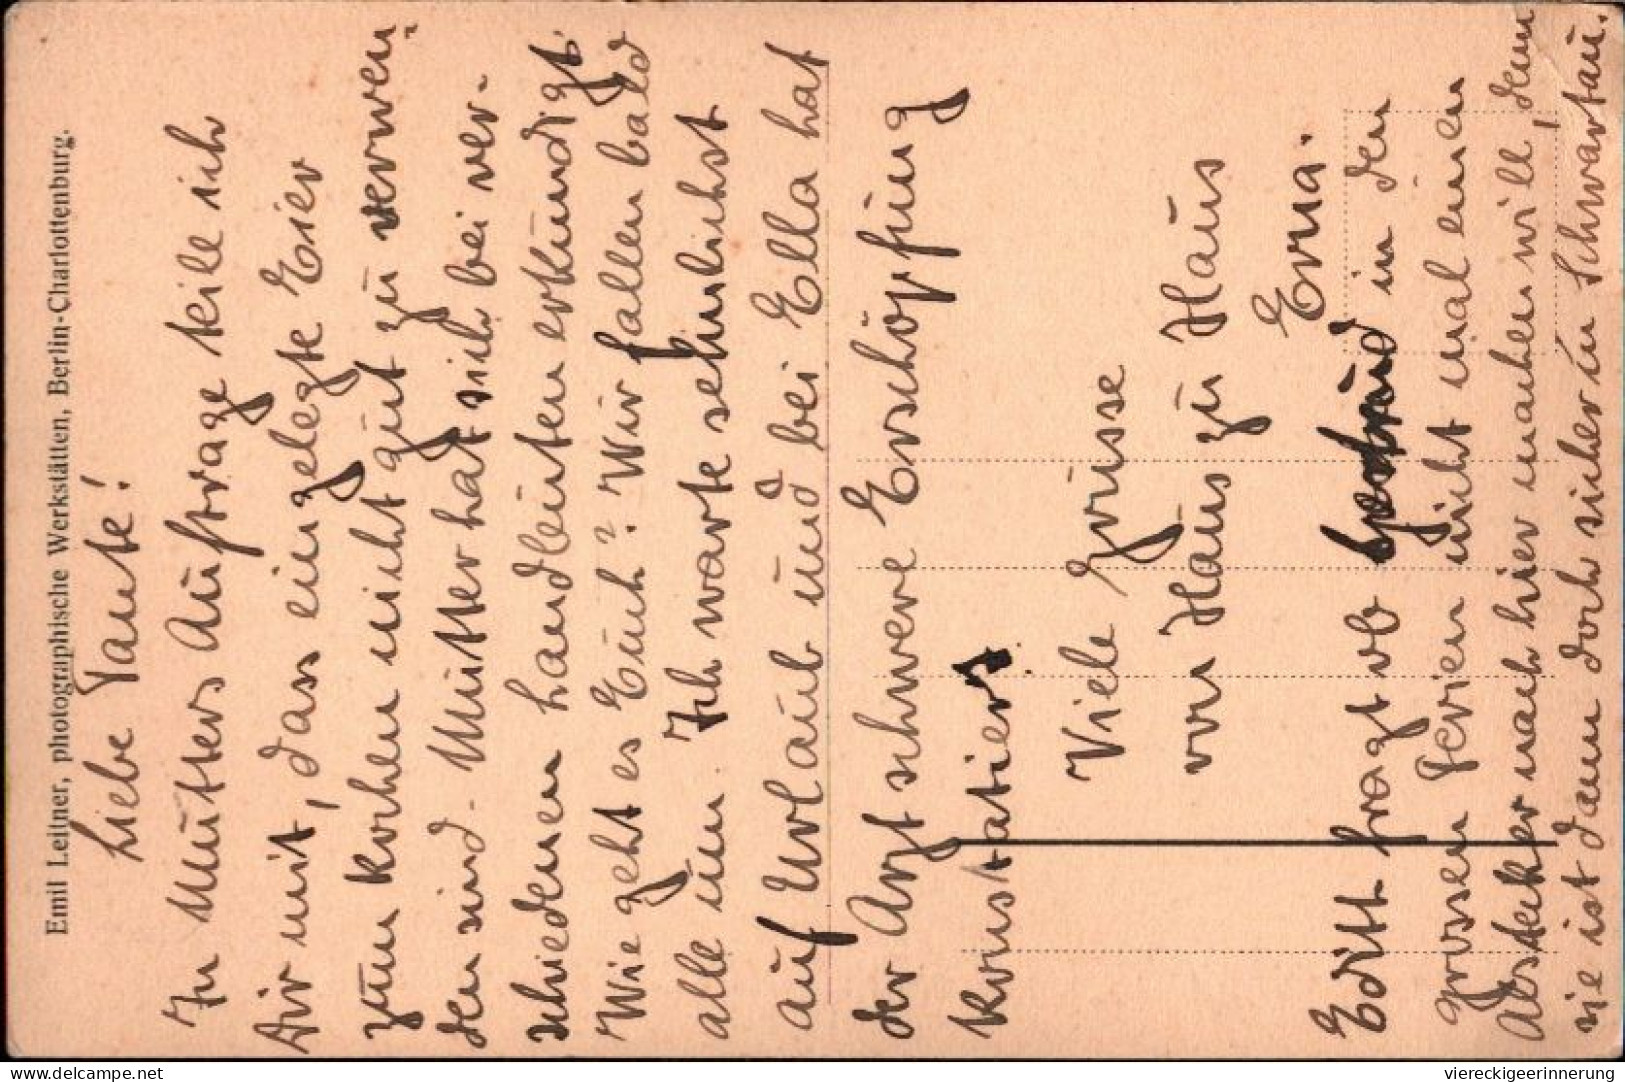 Emil Leitner, photographische Werkstätten, Berlin-Charlottenburg.
Liebe Tante!
In Mutters Auftrage teile ich
Dir mit, dass eingelegte Eier
zum Kochen nicht gut zu verwen-
den sind. Mutter hat sich bei ver-
schiedenen Landleuten erkundigt.
Wie geht es Euch? Wir fallen bald
alle um. Ich warte sehnlichst
auf Urlaub und bei Ella hat
der Arzt schwere Erschöpfung
konstatiert.
Viele Grüsse
von Haus zu Haus
Erna.
Edith fragt ob in den
grossen Ferien nicht mal einen
Abstecher nach hier machen will, denn
sie ist dann doch sicher in Schwartau.
delcampe.net
viereckigeerinnerung